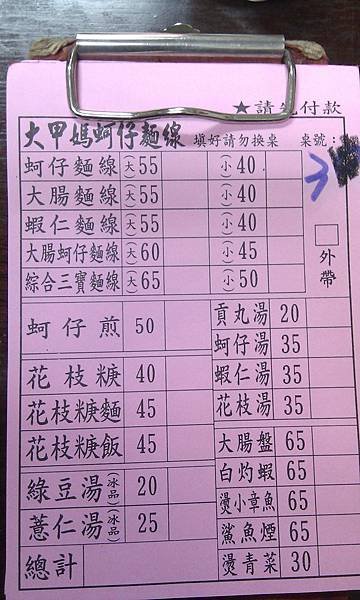 ★請先付款
大甲媽蚵仔麵線 填好請勿換桌 桌號:
蚵仔麵線(大)55 (小)40
大腸麵線(大)55 (小)40
蝦仁麵線(大)55 (小)40
大腸蚵仔麵線(大)60 (小)45
綜合三寶麵線(大)65 (小)50
3
外帶
蚵仔煎 50
花枝焿 40
花枝焿麵 45
花枝焿飯 45
綠豆湯(冰品) 20
薏仁湯(冰品) 25
總計
貢丸湯 20
蚵仔湯 35
蝦仁湯 35
花枝湯 35
大腸盤 65
白灼蝦 65
燙小章魚 65
鯊魚煙 65
燙青菜 30